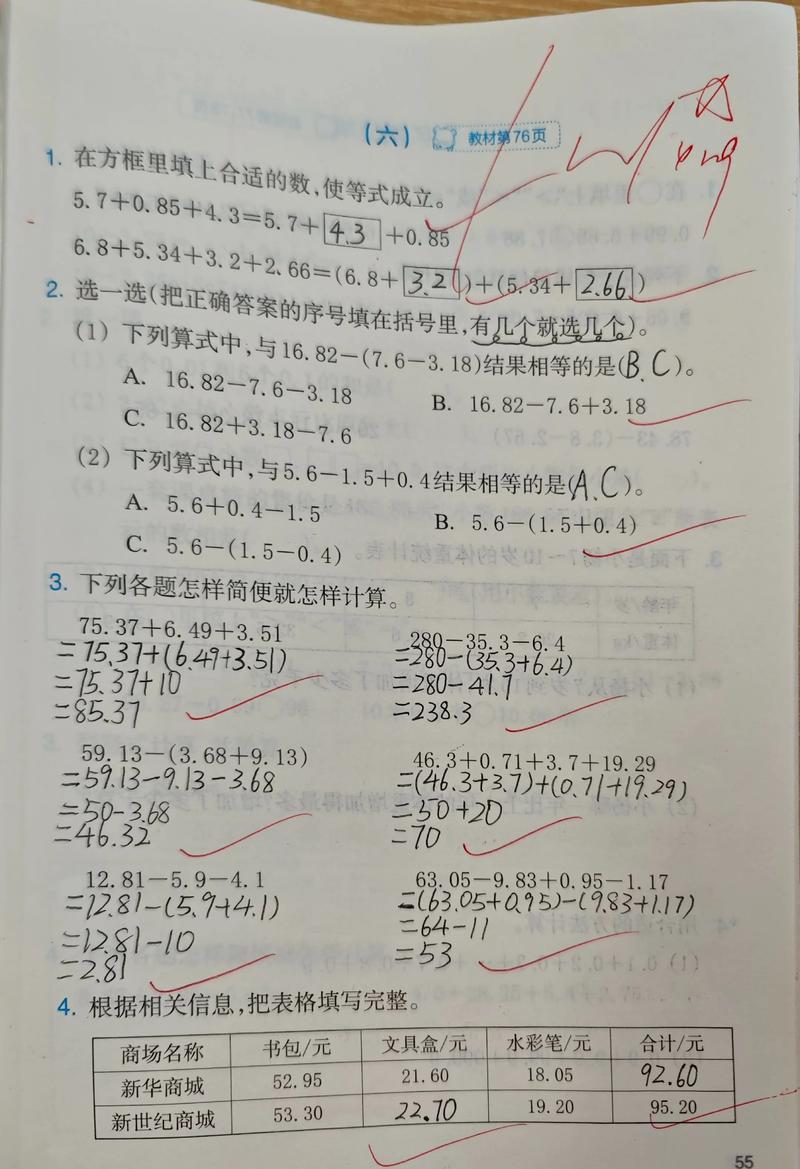 (六) 教材第76页
1. 在方框里填上合适的数,使等式成立。
5.7+0.85+4.3=5.7+4.3+0.85
6.8+5.34+3.2+2.66=(6.8+3.2)+(5.34+2.66)
2. 选一选(把正确答案的序号填在括号里,有几个就选几个)。
(1) 下列算式中,与16.82-(7.6-3.18)结果相等的是(B、C)。
A. 16.82-7.6-3.18 B. 16.82-7.6+3.18
C. 16.82+3.18-7.6
(2) 下列算式中,与5.6-1.5+0.4结果相等的是(A、C)。
A. 5.6+0.4-1.5 B. 5.6-(1.5+0.4)
C. 5.6-(1.5-0.4)
3. 下列各题怎样简便就怎样计算。
75.37+6.49+3.51 280-35.3-6.4
=75.37+(6.49+3.51) =280-(35.3+6.4)
=75.37+10 =280-41.7
=85.37 =238.3
59.13-(3.68+9.13) 46.3+0.71+3.7+19.29
=59.13-9.13-3.68 =(46.3+3.7)+(0.71+19.29)
=50-3.68 =50+20
=46.32 =70
12.81-5.9-4.1 63.05-9.83+0.95-1.17
=12.81-(5.9+4.1) =(63.05+0.95)-(9.83+1.17)
=12.81-10 =64-11
=2.81 =53
4. 根据相关信息,把表格填写完整。
商场名称 书包/元 文具盒/元 水彩笔/元 合计/元
新华商城 52.95 21.60 18.05 92.60
新世纪商城 53.30 22.70 19.20 95.20
55